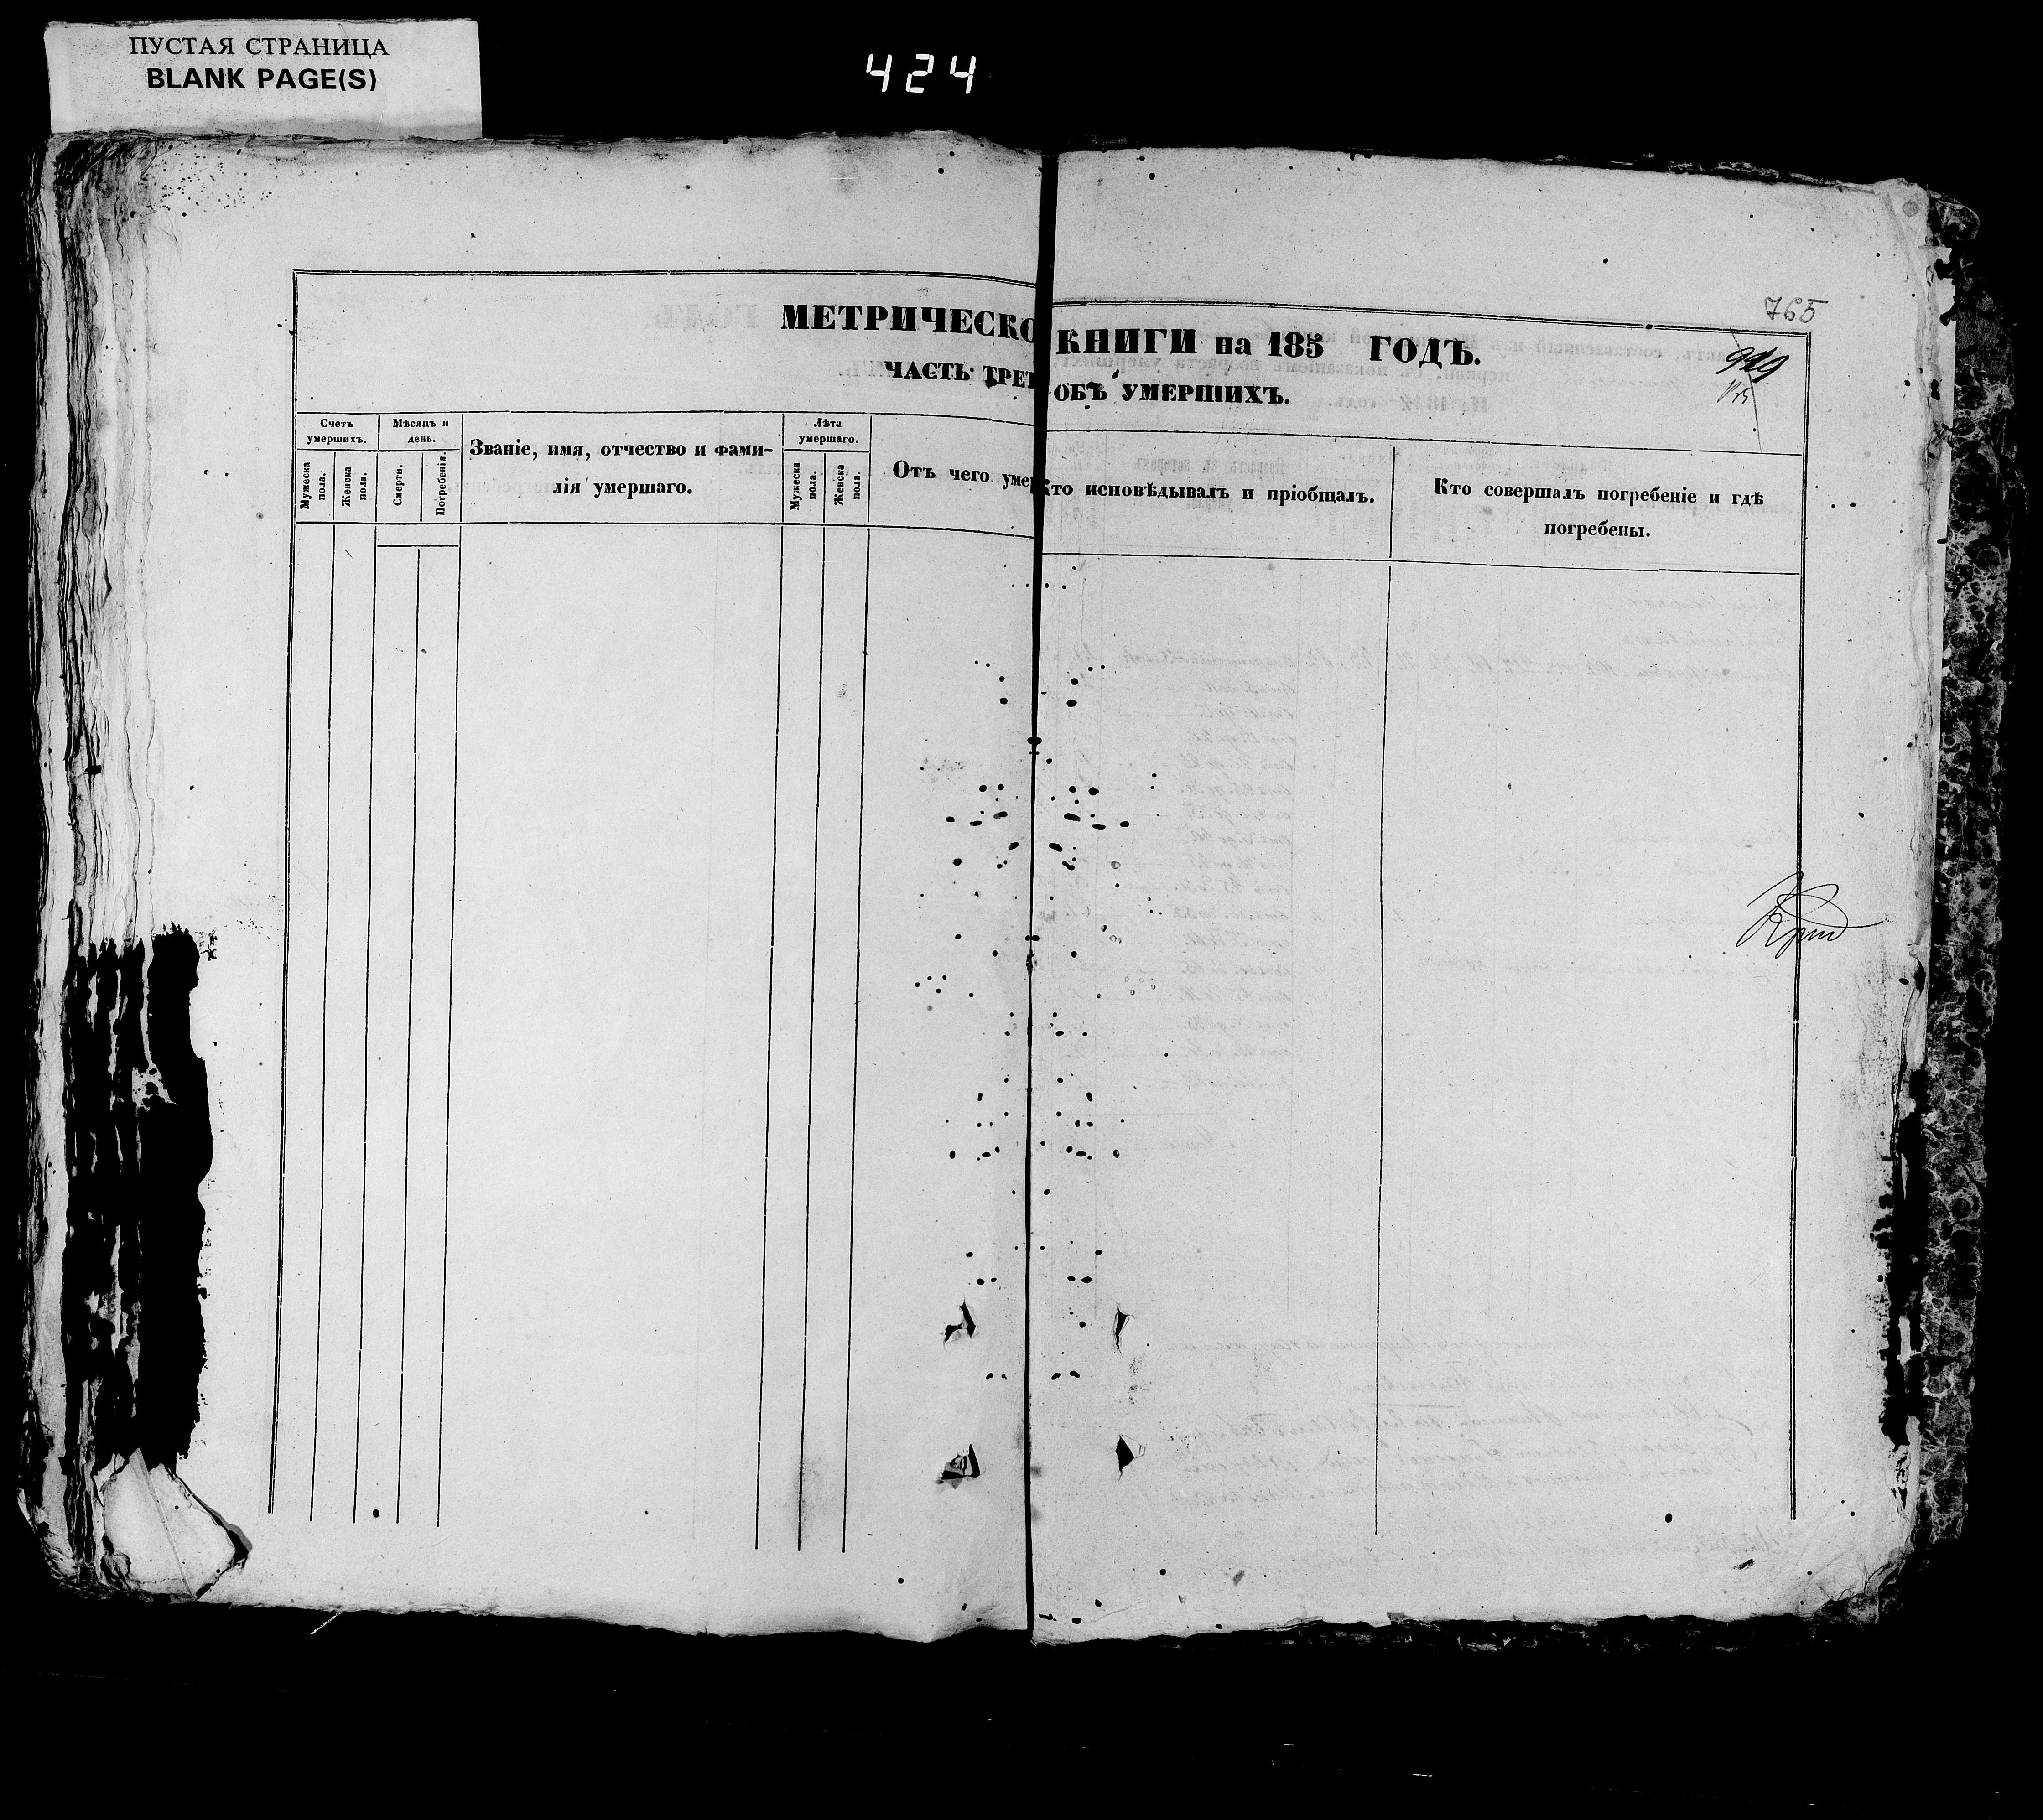 ПУСТАЯ СТРАНИЦА
BLANK PAGE(S)
424
765
МЕТРИЧЕСКО КНИГИ на 185 ГОДЪ.
ЧАСТЬ ТРЕТ ОБЪ УМЕРШИХЪ.
Счетъ умершихъ.
Мужеска пола.
Женска пола.
Мѣсяцъ и день.
Смерти.
Погребенія.
Званіе, имя, отчество и фами-
лія умершаго.
Лѣта умершаго.
Мужеска пола.
Женска пола.
Отъ чего умер
Кто исповѣдывалъ и пріобщалъ.
Кто совершалъ погребеніе и гдѣ
погребены.